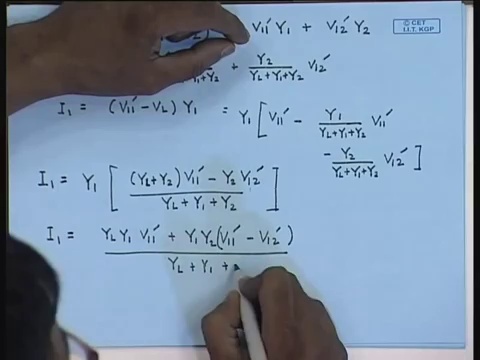 V₁₁′ Y₁ + V₁₂′ Y₂
© CET
I.I.T. KGP
Y₁+Y₂ + Y₂/(Y_L+Y₁+Y₂) V₁₂′
I₁ = (V₁₁′ − V_L) Y₁ = Y₁ [ V₁₁′ − Y₁/(Y_L+Y₁+Y₂) V₁₁′
− Y₂/(Y_L+Y₁+Y₂) V₁₂′ ]
I₁ = Y₁ [ ((Y_L+Y₂) V₁₁′ − Y₂ V₁₂′)/(Y_L + Y₁ + Y₂) ]
I₁ = (Y_L Y₁ V₁₁′ + Y₁ Y₂ (V₁₁′ − V₁₂′))/(Y_L + Y₁ +